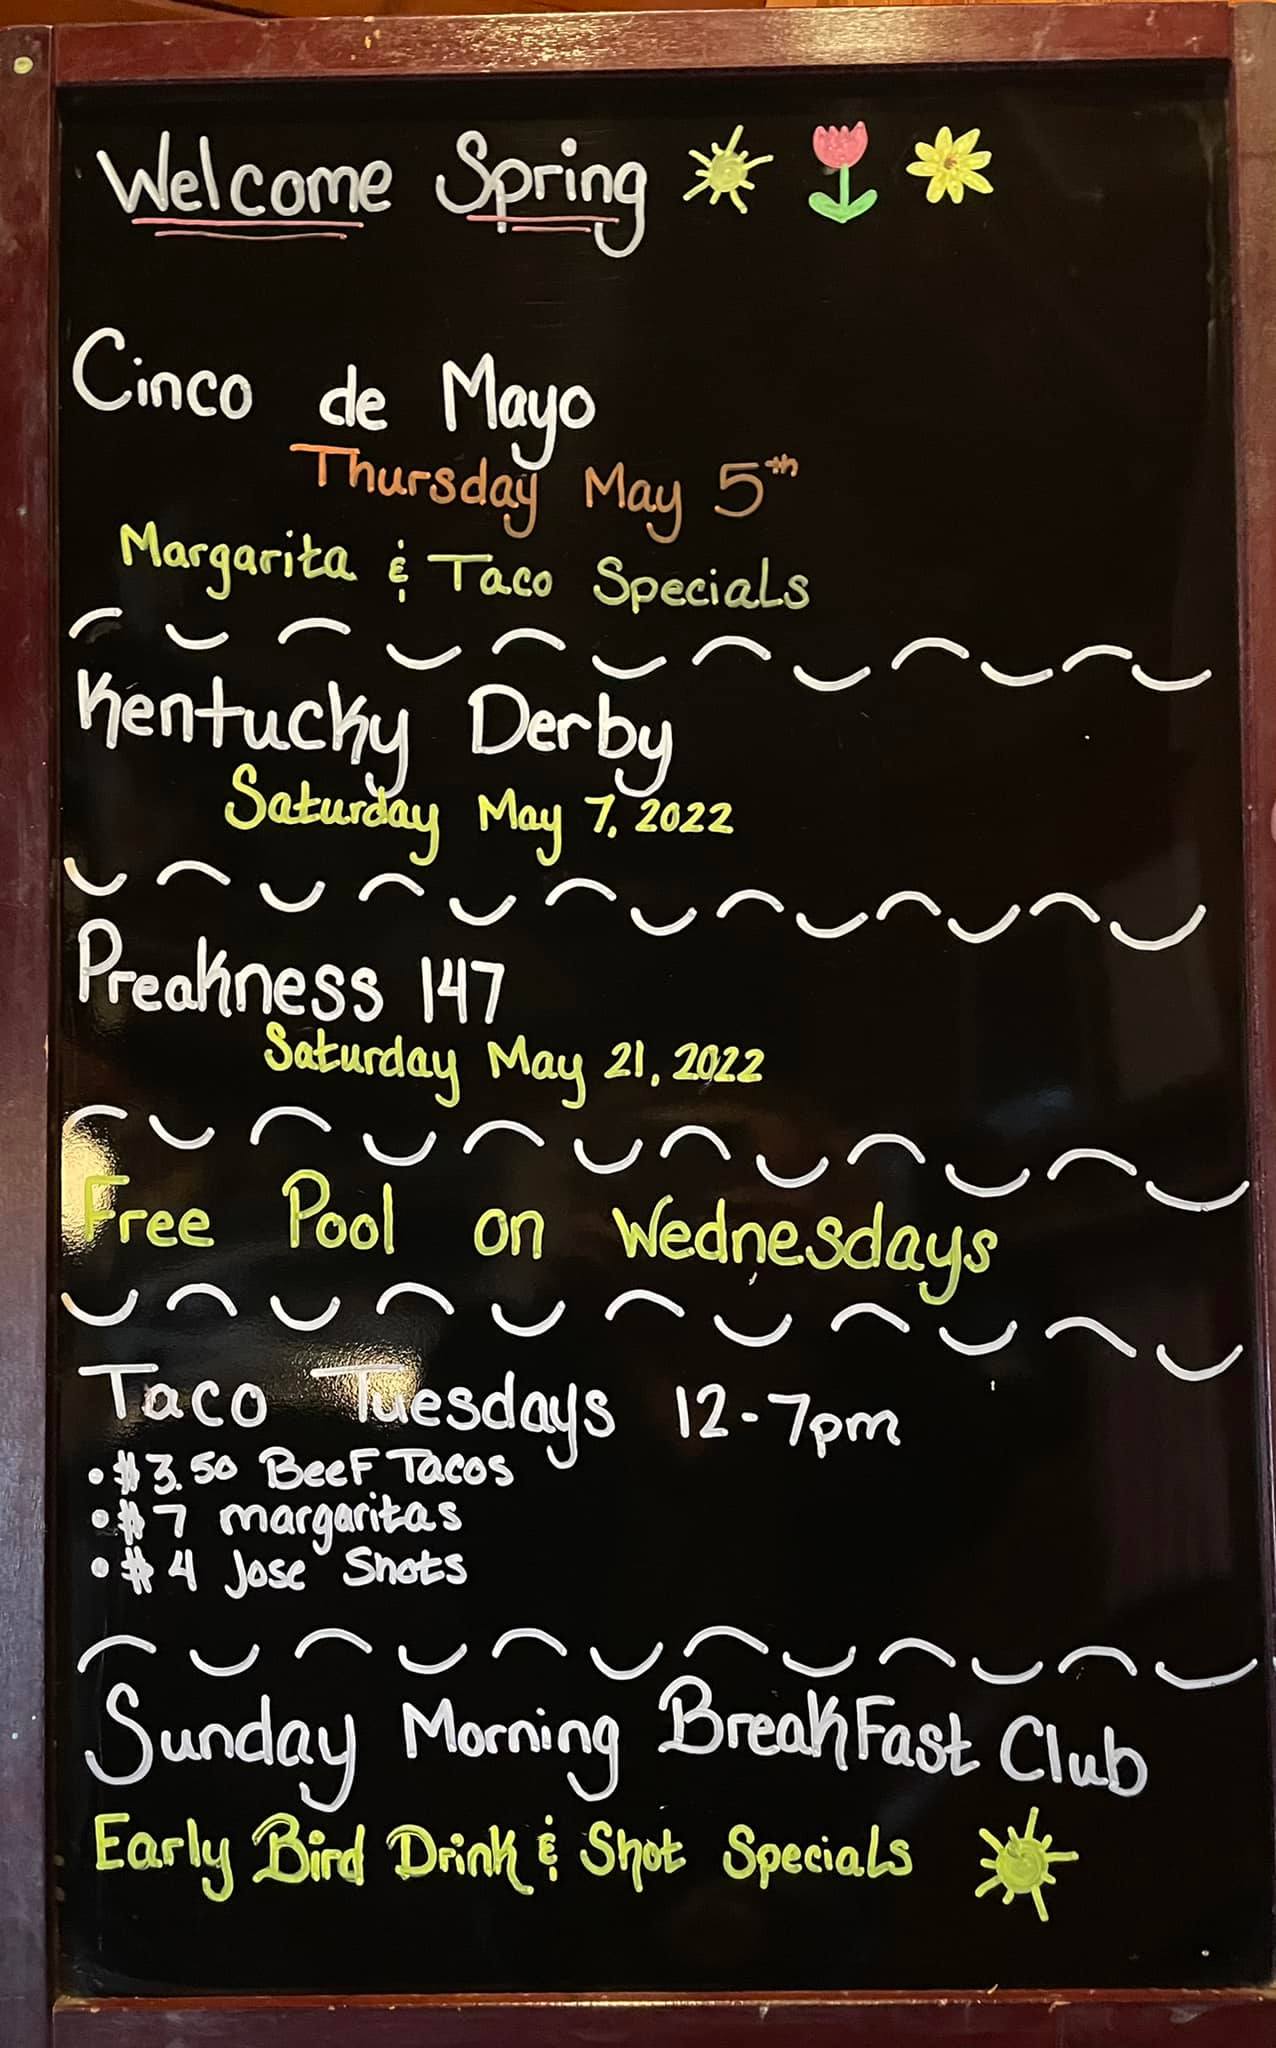 Welcome Spring
Cinco de Mayo
Thursday May 5th
Margarita & Taco Specials
Kentucky Derby
Saturday May 7, 2022
Preakness 147
Saturday May 21, 2022
Free Pool on Wednesdays
Taco Tuesdays 12-7pm
• $3.50 Beef Tacos
• $7 margaritas
• $4 Jose Shots
Sunday Morning BreakFast Club
Early Bird Drink & Shot Specials